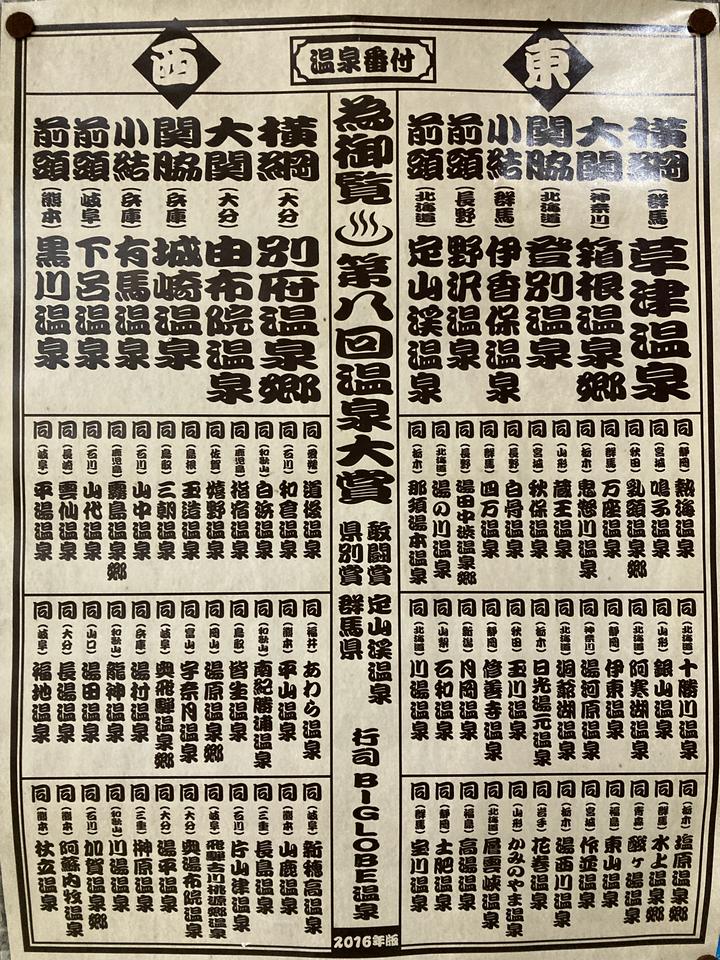 温泉番付
東
横綱（群馬）草津温泉
大関（神奈川）箱根温泉郷
関脇（北海道）登別温泉
小結（群馬）伊香保温泉
前頭（長野）野沢温泉
前頭（北海道）定山渓温泉
同（静岡）熱海温泉
同（宮城）鳴子温泉
同（秋田）乳頭温泉郷
同（群馬）万座温泉
同（栃木）鬼怒川温泉
同（山形）蔵王温泉
同（宮城）秋保温泉
同（長野）白骨温泉
同（群馬）四万温泉
同（長野）湯田中渋温泉郷
同（北海道）湯の川温泉
同（栃木）那須湯本温泉
同（北海道）十勝川温泉
同（山形）銀山温泉
同（北海道）阿寒湖温泉
同（静岡）伊東温泉
同（神奈川）湯河原温泉
同（北海道）洞爺湖温泉
同（栃木）日光湯元温泉
同（秋田）玉川温泉
同（静岡）修善寺温泉
同（新潟）月岡温泉
同（山梨）石和温泉
同（北海道）川湯温泉
同（栃木）塩原温泉郷
同（群馬）水上温泉郷
同（青森）酸ヶ湯温泉
同（福島）東山温泉
同（宮城）作並温泉
同（栃木）湯西川温泉
同（岩手）花巻温泉
同（山形）かみのやま温泉
同（北海道）層雲峡温泉
同（福島）高湯温泉
同（静岡）土肥温泉
同（群馬）宝川温泉
為御覧♨第八回温泉大賞
敢闘賞 定山渓温泉
県別賞 群馬県
行司 BIGLOBE温泉
2016年版
西
横綱（大分）別府温泉郷
大関（大分）由布院温泉
関脇（兵庫）城崎温泉
小結（兵庫）有馬温泉
前頭（岐阜）下呂温泉
前頭（熊本）黒川温泉
同（愛媛）道後温泉
同（石川）和倉温泉
同（和歌山）白浜温泉
同（鹿児島）指宿温泉
同（佐賀）嬉野温泉
同（島根）玉造温泉
同（鳥取）三朝温泉
同（石川）山中温泉
同（鹿児島）霧島温泉郷
同（石川）山代温泉
同（長崎）雲仙温泉
同（岐阜）平湯温泉
同（福井）あわら温泉
同（熊本）平山温泉
同（和歌山）南紀勝浦温泉
同（鳥取）皆生温泉
同（岡山）湯原温泉郷
同（富山）宇奈月温泉
同（岐阜）奥飛騨温泉郷
同（兵庫）湯村温泉
同（和歌山）龍神温泉
同（山口）湯田温泉
同（大分）長湯温泉
同（岐阜）福地温泉
同（岐阜）新穂高温泉
同（熊本）山鹿温泉
同（三重）長島温泉
同（石川）片山津温泉
同（岐阜）飛騨古川桃源郷温泉
同（大分）奥湯布院温泉
同（大分）湯平温泉
同（三重）榊原温泉
同（和歌山）川湯温泉
同（石川）加賀温泉郷
同（熊本）阿蘇内牧温泉
同（熊本）杖立温泉